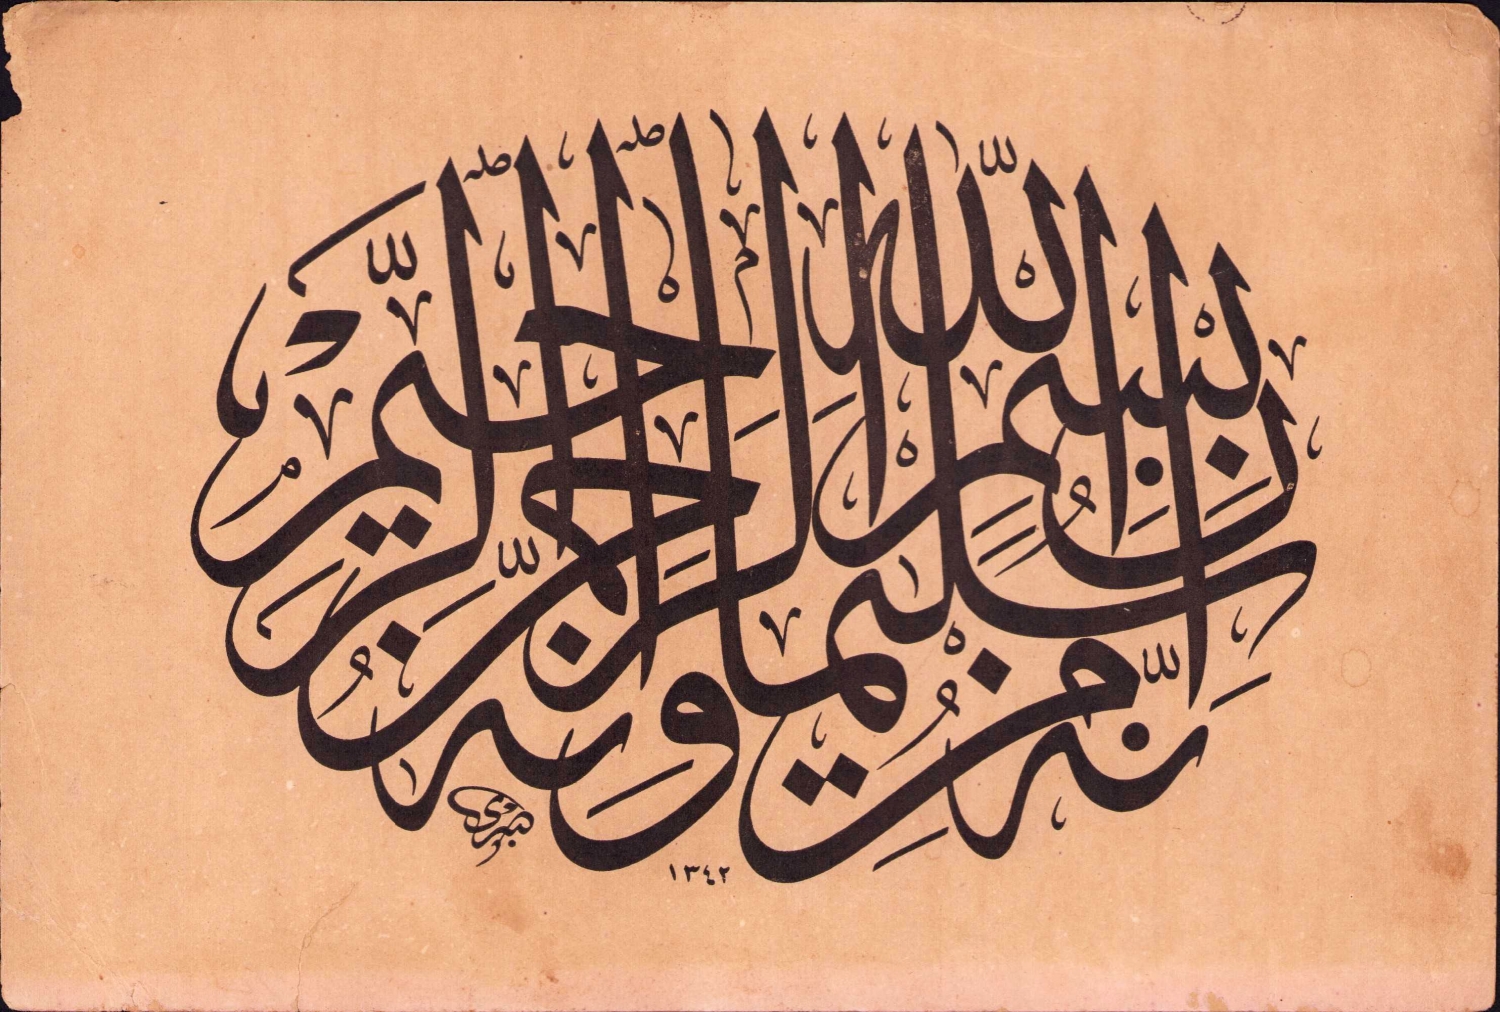 إِنَّهُ مِنْ سُلَيْمَانَ وَإِنَّهُ بِسْمِ اللّٰهِ الرَّحْمٰنِ الرَّحِيمِ
١٣٤٢